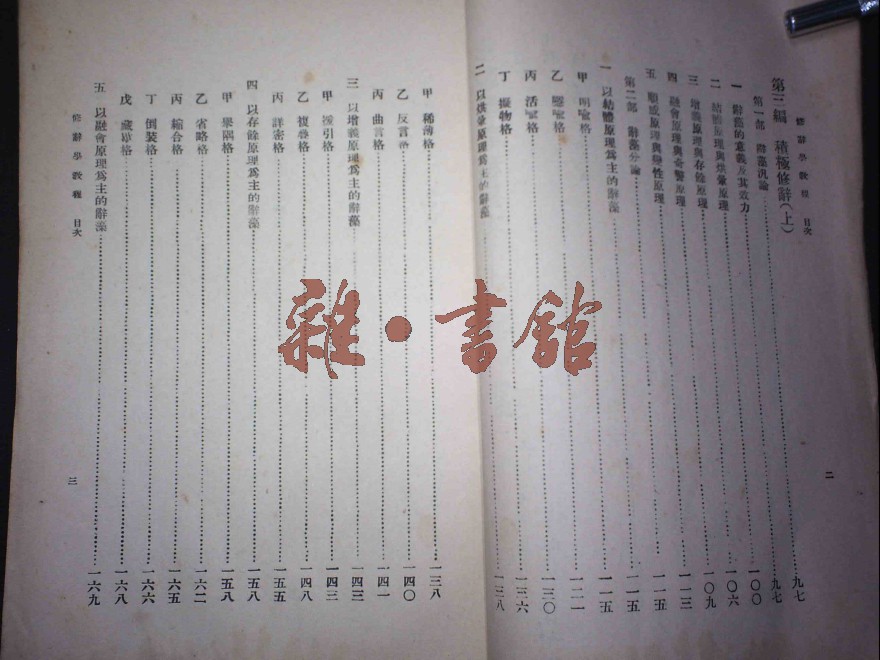 修辭學教程 目次
二
第三編 積極修辭(上)……九七
第一部 辭藻汎論……九七
一 辭藻的意義及其效力……一〇〇
二 結體原理與烘彙原理……一〇六
三 增義原理與存餘原理……一〇九
四 融會原理與奇警原理……一一三
五 順感原理與變性原理……一一五
第二部 辭藻分論……一一五
一 以結體原理爲主的辭藻……一一五
甲 明喩格……一二一
乙 隱喩格……一三〇
丙 活喩格……一三六
丁 擬物格……一三八
二 以烘彙原理爲主的辭藻
甲 稀薄格……一三八
乙 反言格……一四〇
丙 曲言格……一四一
三 以增義原理爲主的辭藻……一四三
甲 援引格……一四三
乙 複疊格……一四八
丙 詳密格……一五五
四 以存餘原理爲主的辭藻……一五八
甲 舉隅格……一五八
乙 省略格……一六二
丙 縮合格……一六五
丁 倒裝格……一六六
戊 藏單格……一六八
五 以融會原理爲主的辭藻……一六九
修辭學教程 目次
三
雜·書館